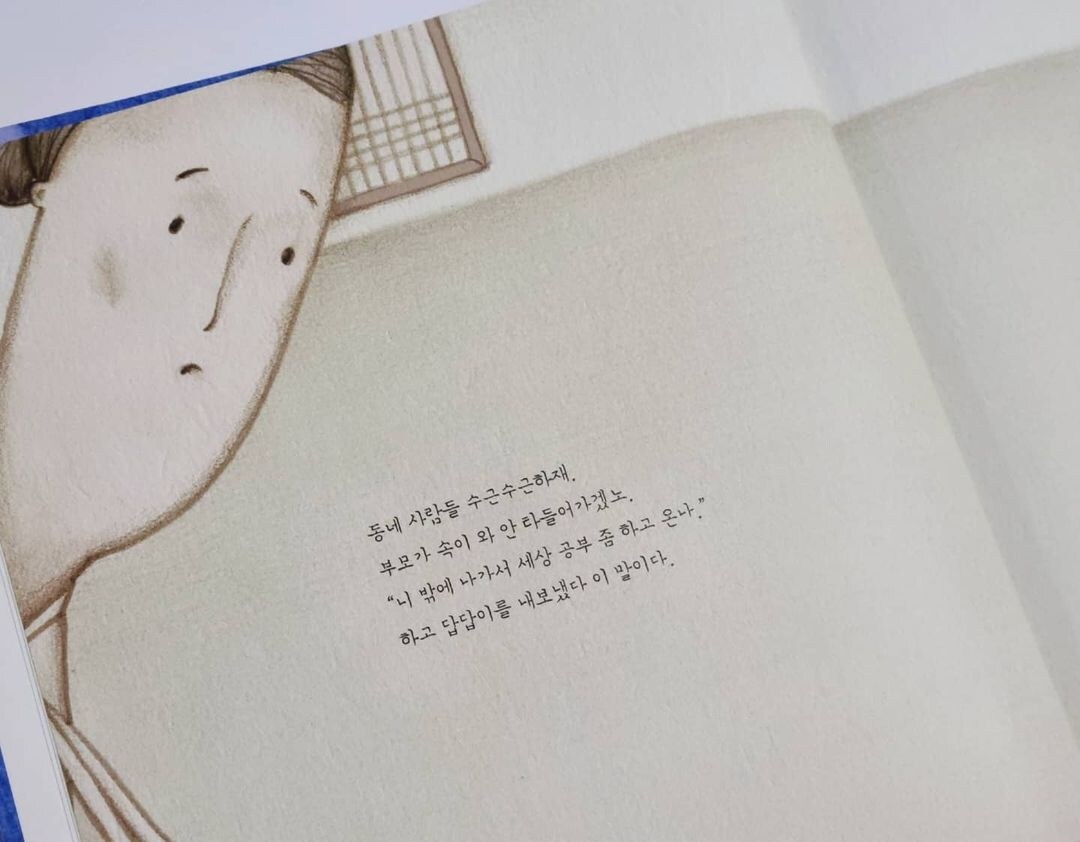 동네 사람들 수근수근하재.
부모가 속이 와 안 타들어가겠노.
“니 밖에 나가서 세상 공부 좀 하고 온나.”
하고 답답이를 내보냈다 이 말이다.